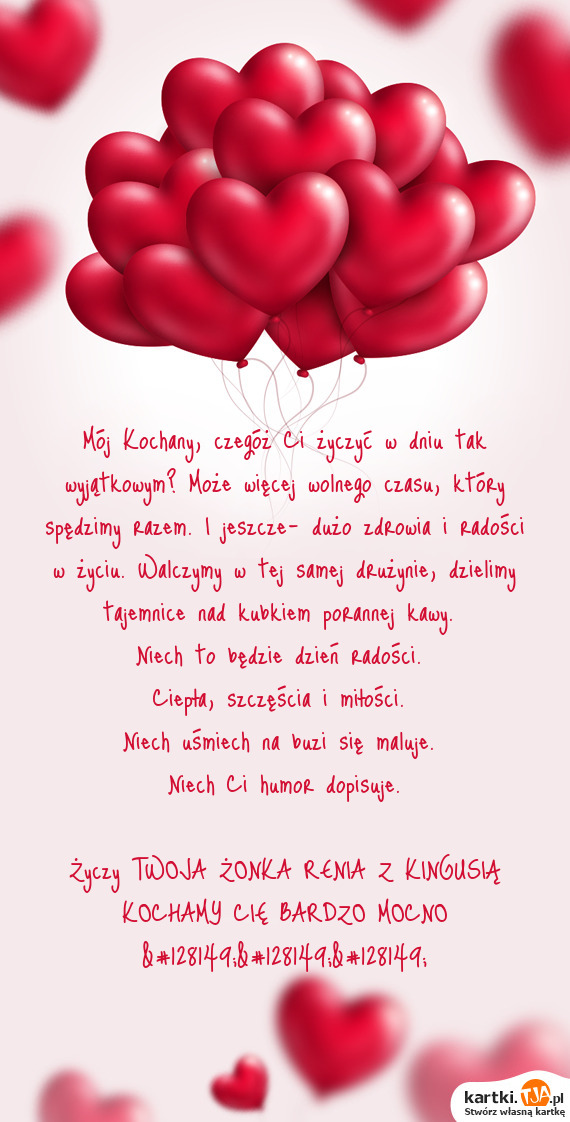 Mój Kochany, czegóż Ci życzyć w dniu tak
wyjątkowym? Może więcej wolnego czasu, który
spędzimy razem. I jeszcze- dużo zdrowia i radości
w życiu. Walczymy w tej samej drużynie, dzielimy
tajemnice nad kubkiem porannej kawy.
Niech to będzie dzień radości.
Ciepła, szczęścia i miłości.
Niech uśmiech na buzi się maluje.
Niech Ci humor dopisuje.
Życzy TWOJA ŻONKA RENIA Z KINGUSIĄ
KOCHAMY CIĘ BARDZO MOCNO
&#128149;&#128149;&#128149;
kartki.TJA.pl
Stwórz własną kartkę